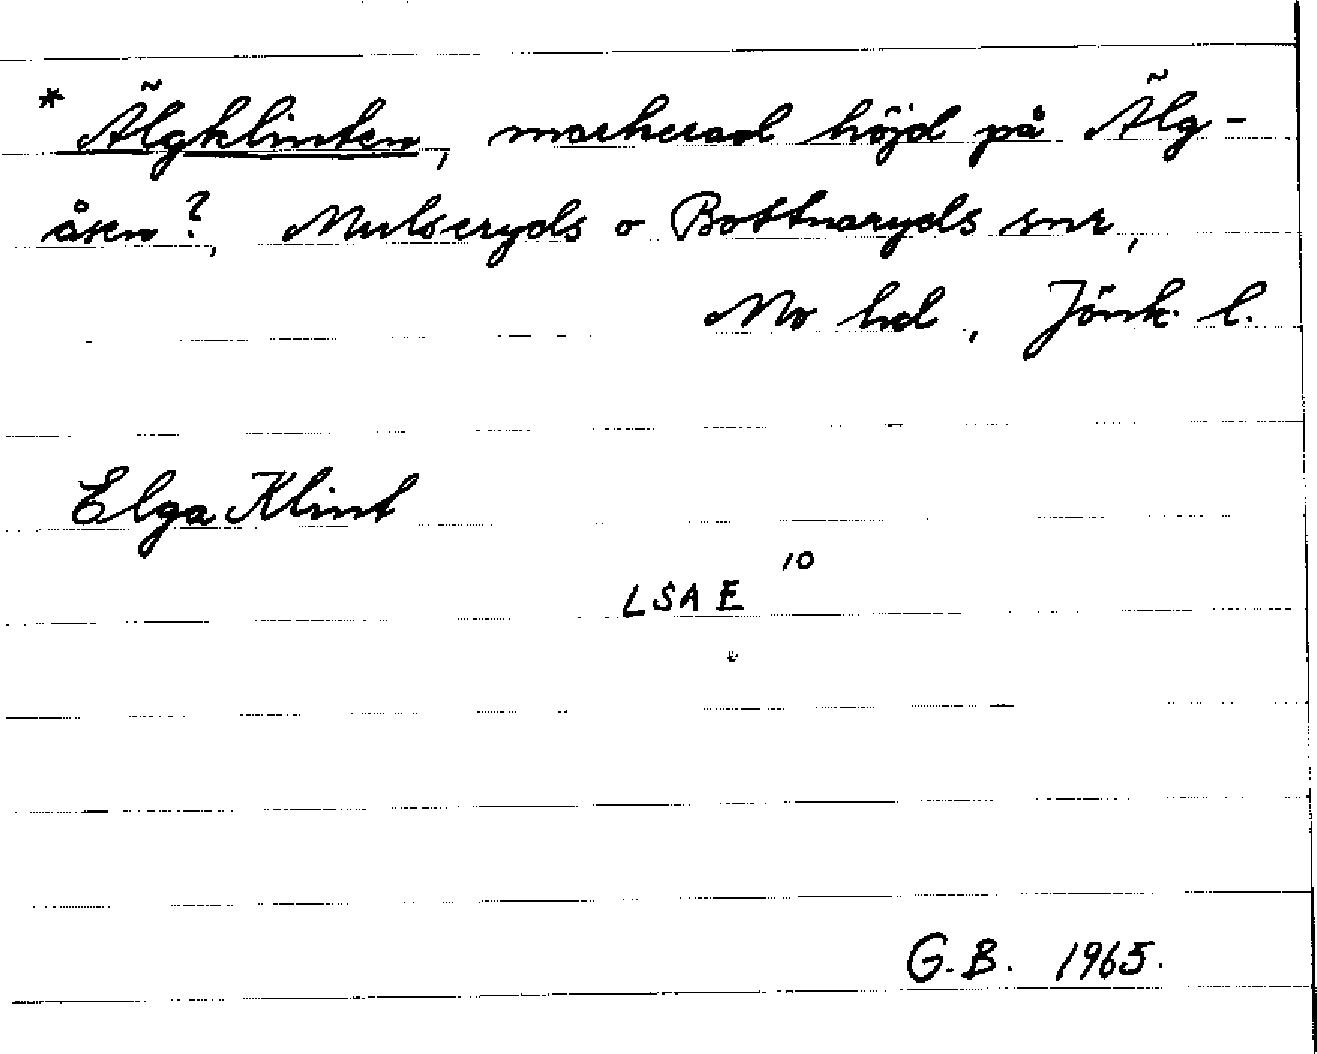 * Älgklinten, markerad höjd på Älg-
åsen?, Mulseryds o Bottnaryds snr,
Mo hd, Jönk. l.
Elga Klint
LSA E 10
G.B. 1965.